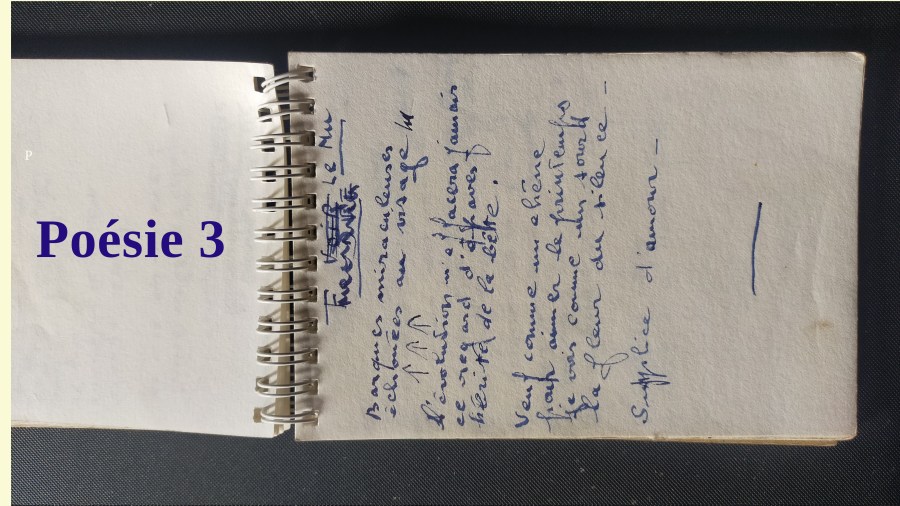 Poésie 3
P
Le Nu
Barques miraculeuses
échouées au visage
↑ ↑ ↑
L'évolution n'effacera jamais
ce regard d'épaves
hérité de la bête.
Veuf comme un chêne
trop aimer le printemps
je vois comme un sourd
la fleur du silence –
Supplice d'amour –